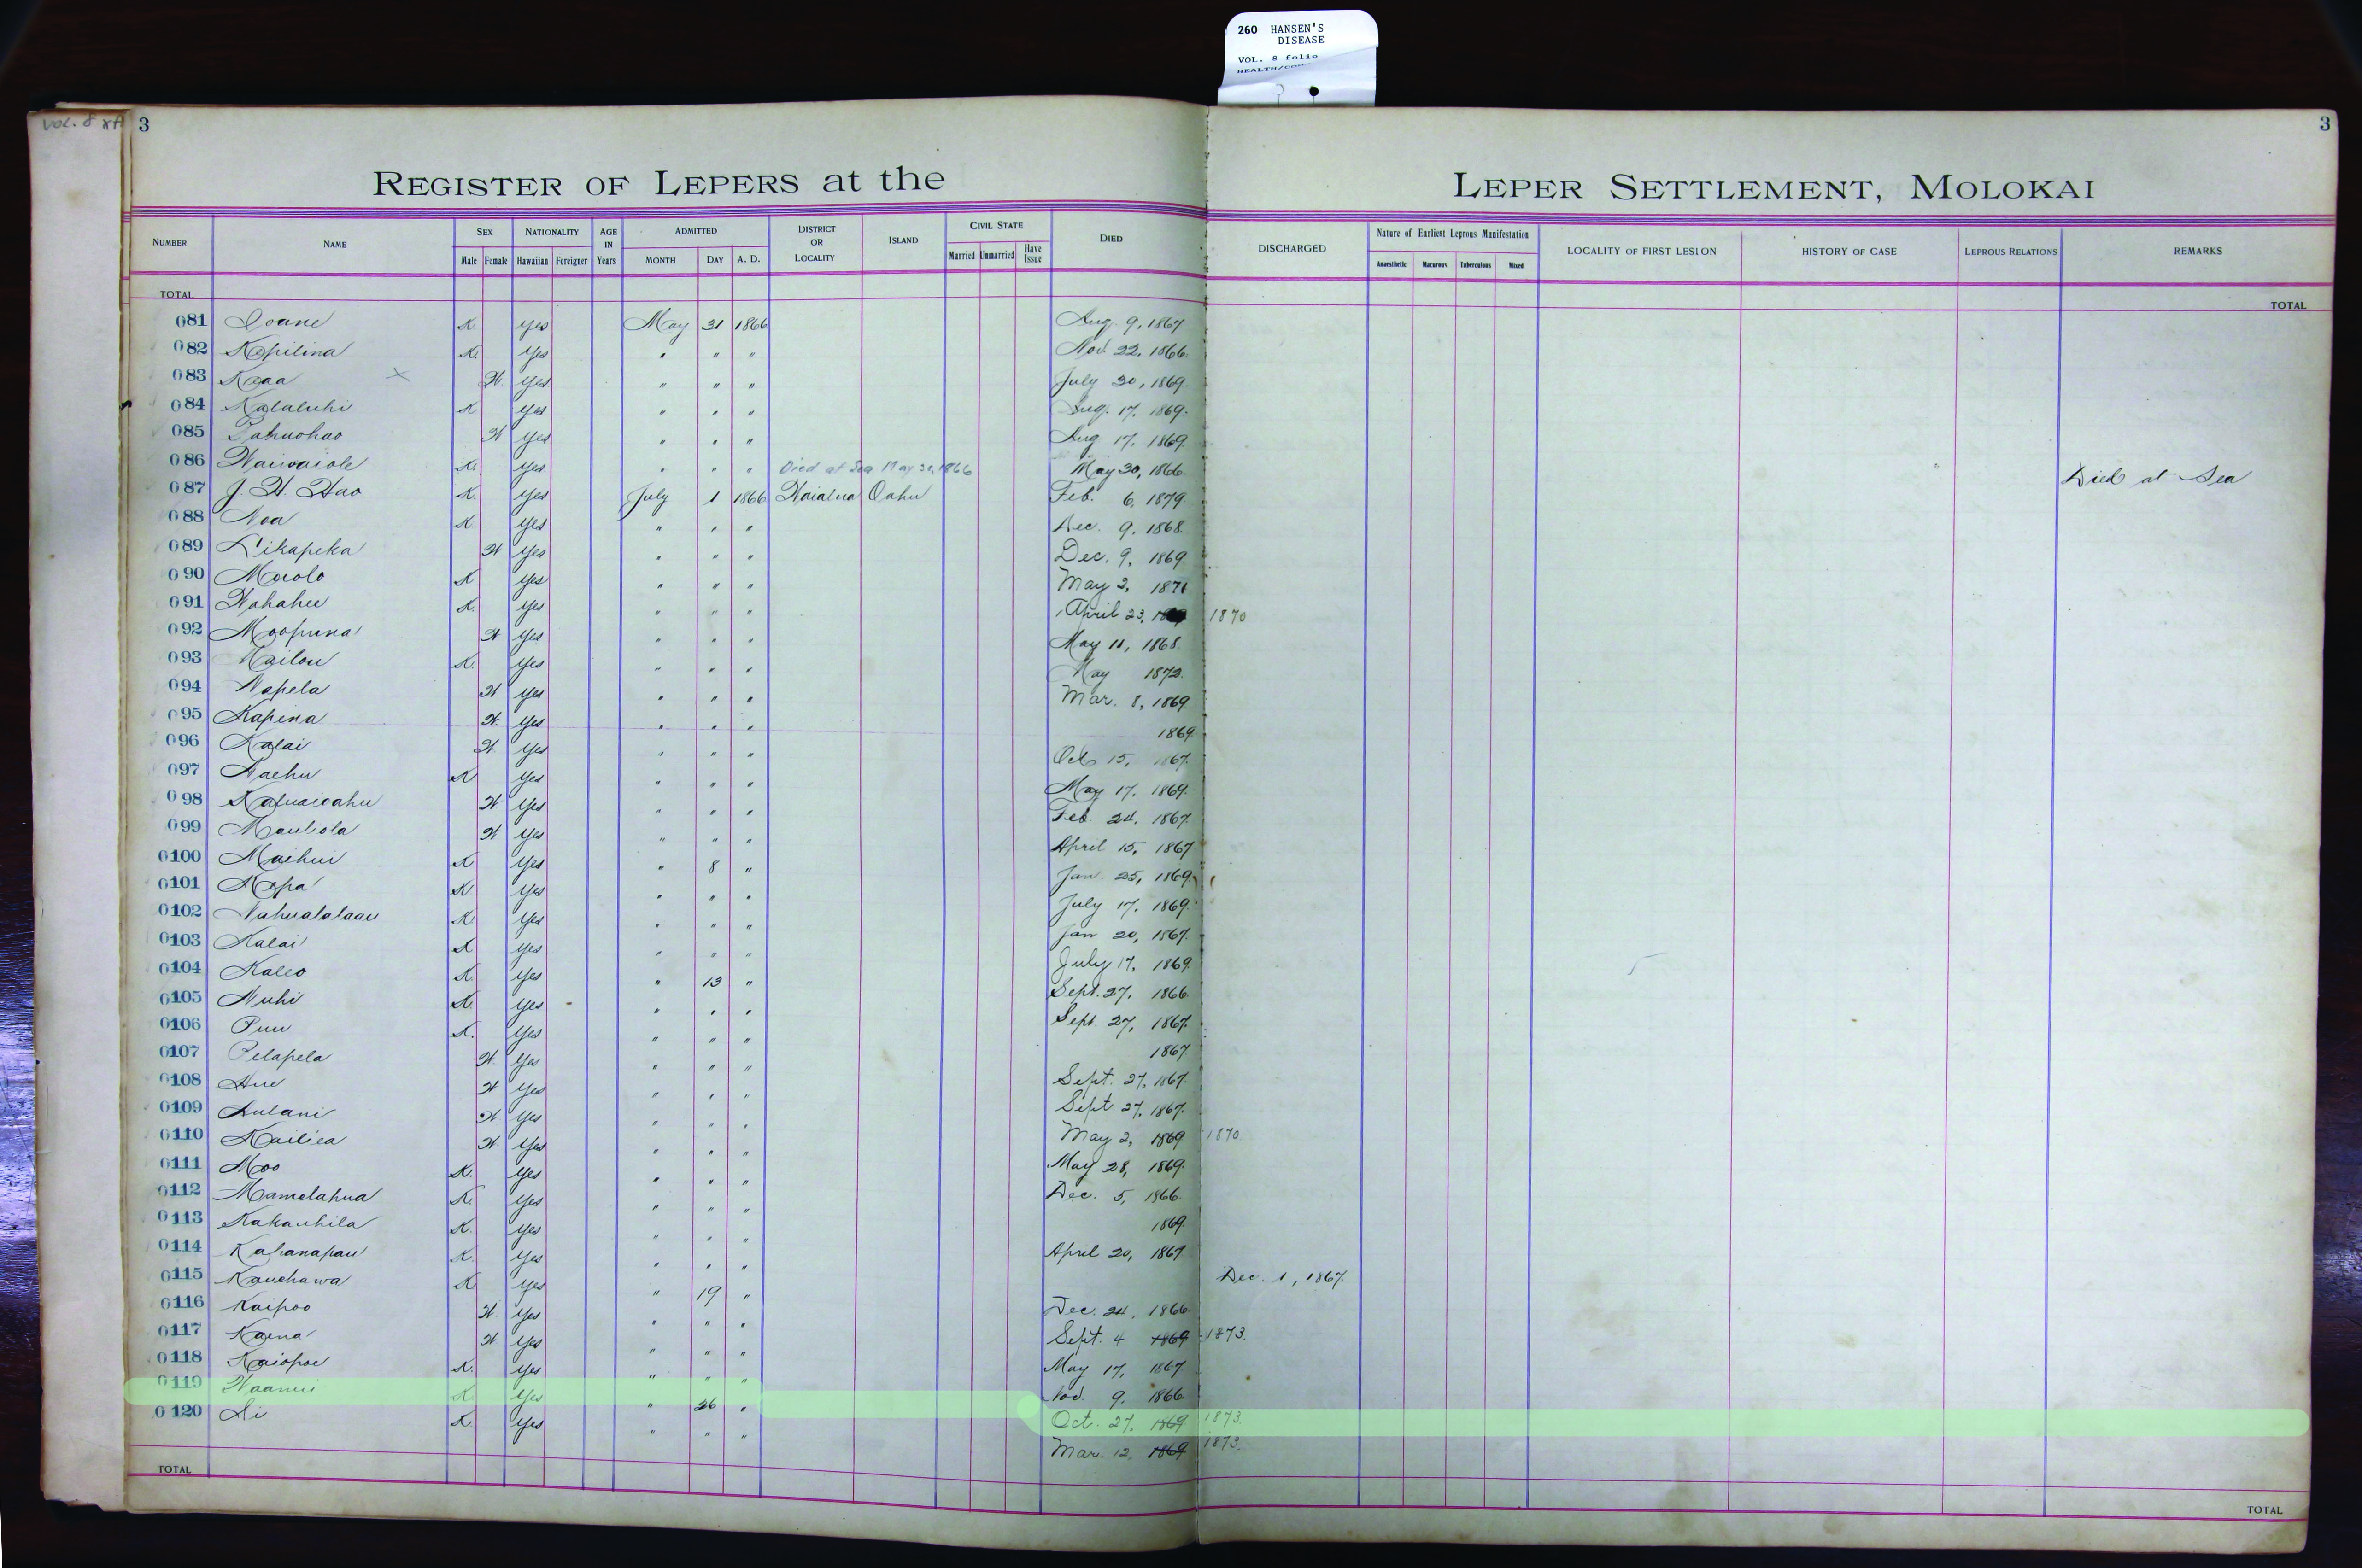 260 HANSEN'S
DISEASE
VOL. 8 folio
VOL. 8
3
3
REGISTER OF LEPERS at the LEPER SETTLEMENT, MOLOKAI
NUMBER NAME SEX NATIONALITY AGE IN Years ADMITTED DISTRICT OR LOCALITY ISLAND CIVIL STATE DIED DISCHARGED Nature of Earliest Leprous Manifestation LOCALITY OF FIRST LESION HISTORY OF CASE LEPROUS RELATIONS REMARKS
Male Female Hawaiian Foreigner MONTH DAY A. D. Married Unmarried Have Issue Anaesthetic Macurous Tuberculous Mixed
TOTAL TOTAL
081 Ioane K. yes May 31 1866 Aug. 9, 1867
082 Kapilina K. yes " " " Nov. 22, 1866
083 Kaaa x W. yes " " " July 30, 1869
084 Kalaluhi K yes " " " Aug. 17, 1869.
085 W yes " " " Aug 17, 1869.
086 Waiwaiole K. yes " " " Died at Sea May 30, 1866 May 30, 1866 Died at Sea
087 J. H. Hao K. yes July 1 1866 Waialua Oahu Feb. 6, 1879
088 Noa K. yes " " " Dec. 9, 1868
089 Likapeka W yes " " " Dec. 9, 1869
090 K yes " " " May 2, 1871
091 Wahahee K. yes " " " April 23, 1870
092 Moopuna W yes " " " May 11, 1868
093 Kailou K. yes " " " May 1872.
094 Napela W yes " " " Mar. 8, 1869
095 Kapena W. yes " " " 1869
096 Kalai W yes " " " Oct 15, 1867.
097 Naehu K yes " " " May 17, 1869.
098 W yes " " " Feb. 24, 1867.
099 Mauliola W yes " " " April 15, 1867
0100 Maehui K yes " 8 " Jan. 25, 1869
0101 Napa K yes " " " July 17, 1869.
0102 Nahualalaau K. yes " " " Jan 20, 1867.
0103 Kalai K yes " " " July 17, 1869
0104 Kaleo K. yes " 13 " Sept. 27, 1866
0105 Nuhi K. yes " " " Sept. 27, 1867.
0106 Puu K. yes " " " 1867
0107 Pelapela W yes " " " Sept. 27, 1867.
0108 Hue W yes " " " Sept 27, 1867.
0109 Aulani W yes " " " May 2, 1869 1870
0110 Kailiea W. yes " " " May 28, 1869.
0111 Moo K. yes " " " Dec. 5, 1866.
0112 Mamelahua K. yes " " " 1869.
0113 Kakauhila K. yes " " " April 20, 1867
0114 Kahanapau K. yes " " " Dec. 1, 1867.
0115 Kauehawa K. yes " 19 " Dec. 24, 1866
0116 Kaipoo W. yes " " " Sept. 4 1869 1873.
0117 Kaena W yes " " " May 17, 1867
0118 Kaiopoe K. yes " " " Nov. 9, 1866
0119 K. yes " 26 " Oct. 27, 1869 1873.
0120 K. yes " " " Mar. 12, 1869 1873.
TOTAL TOTAL